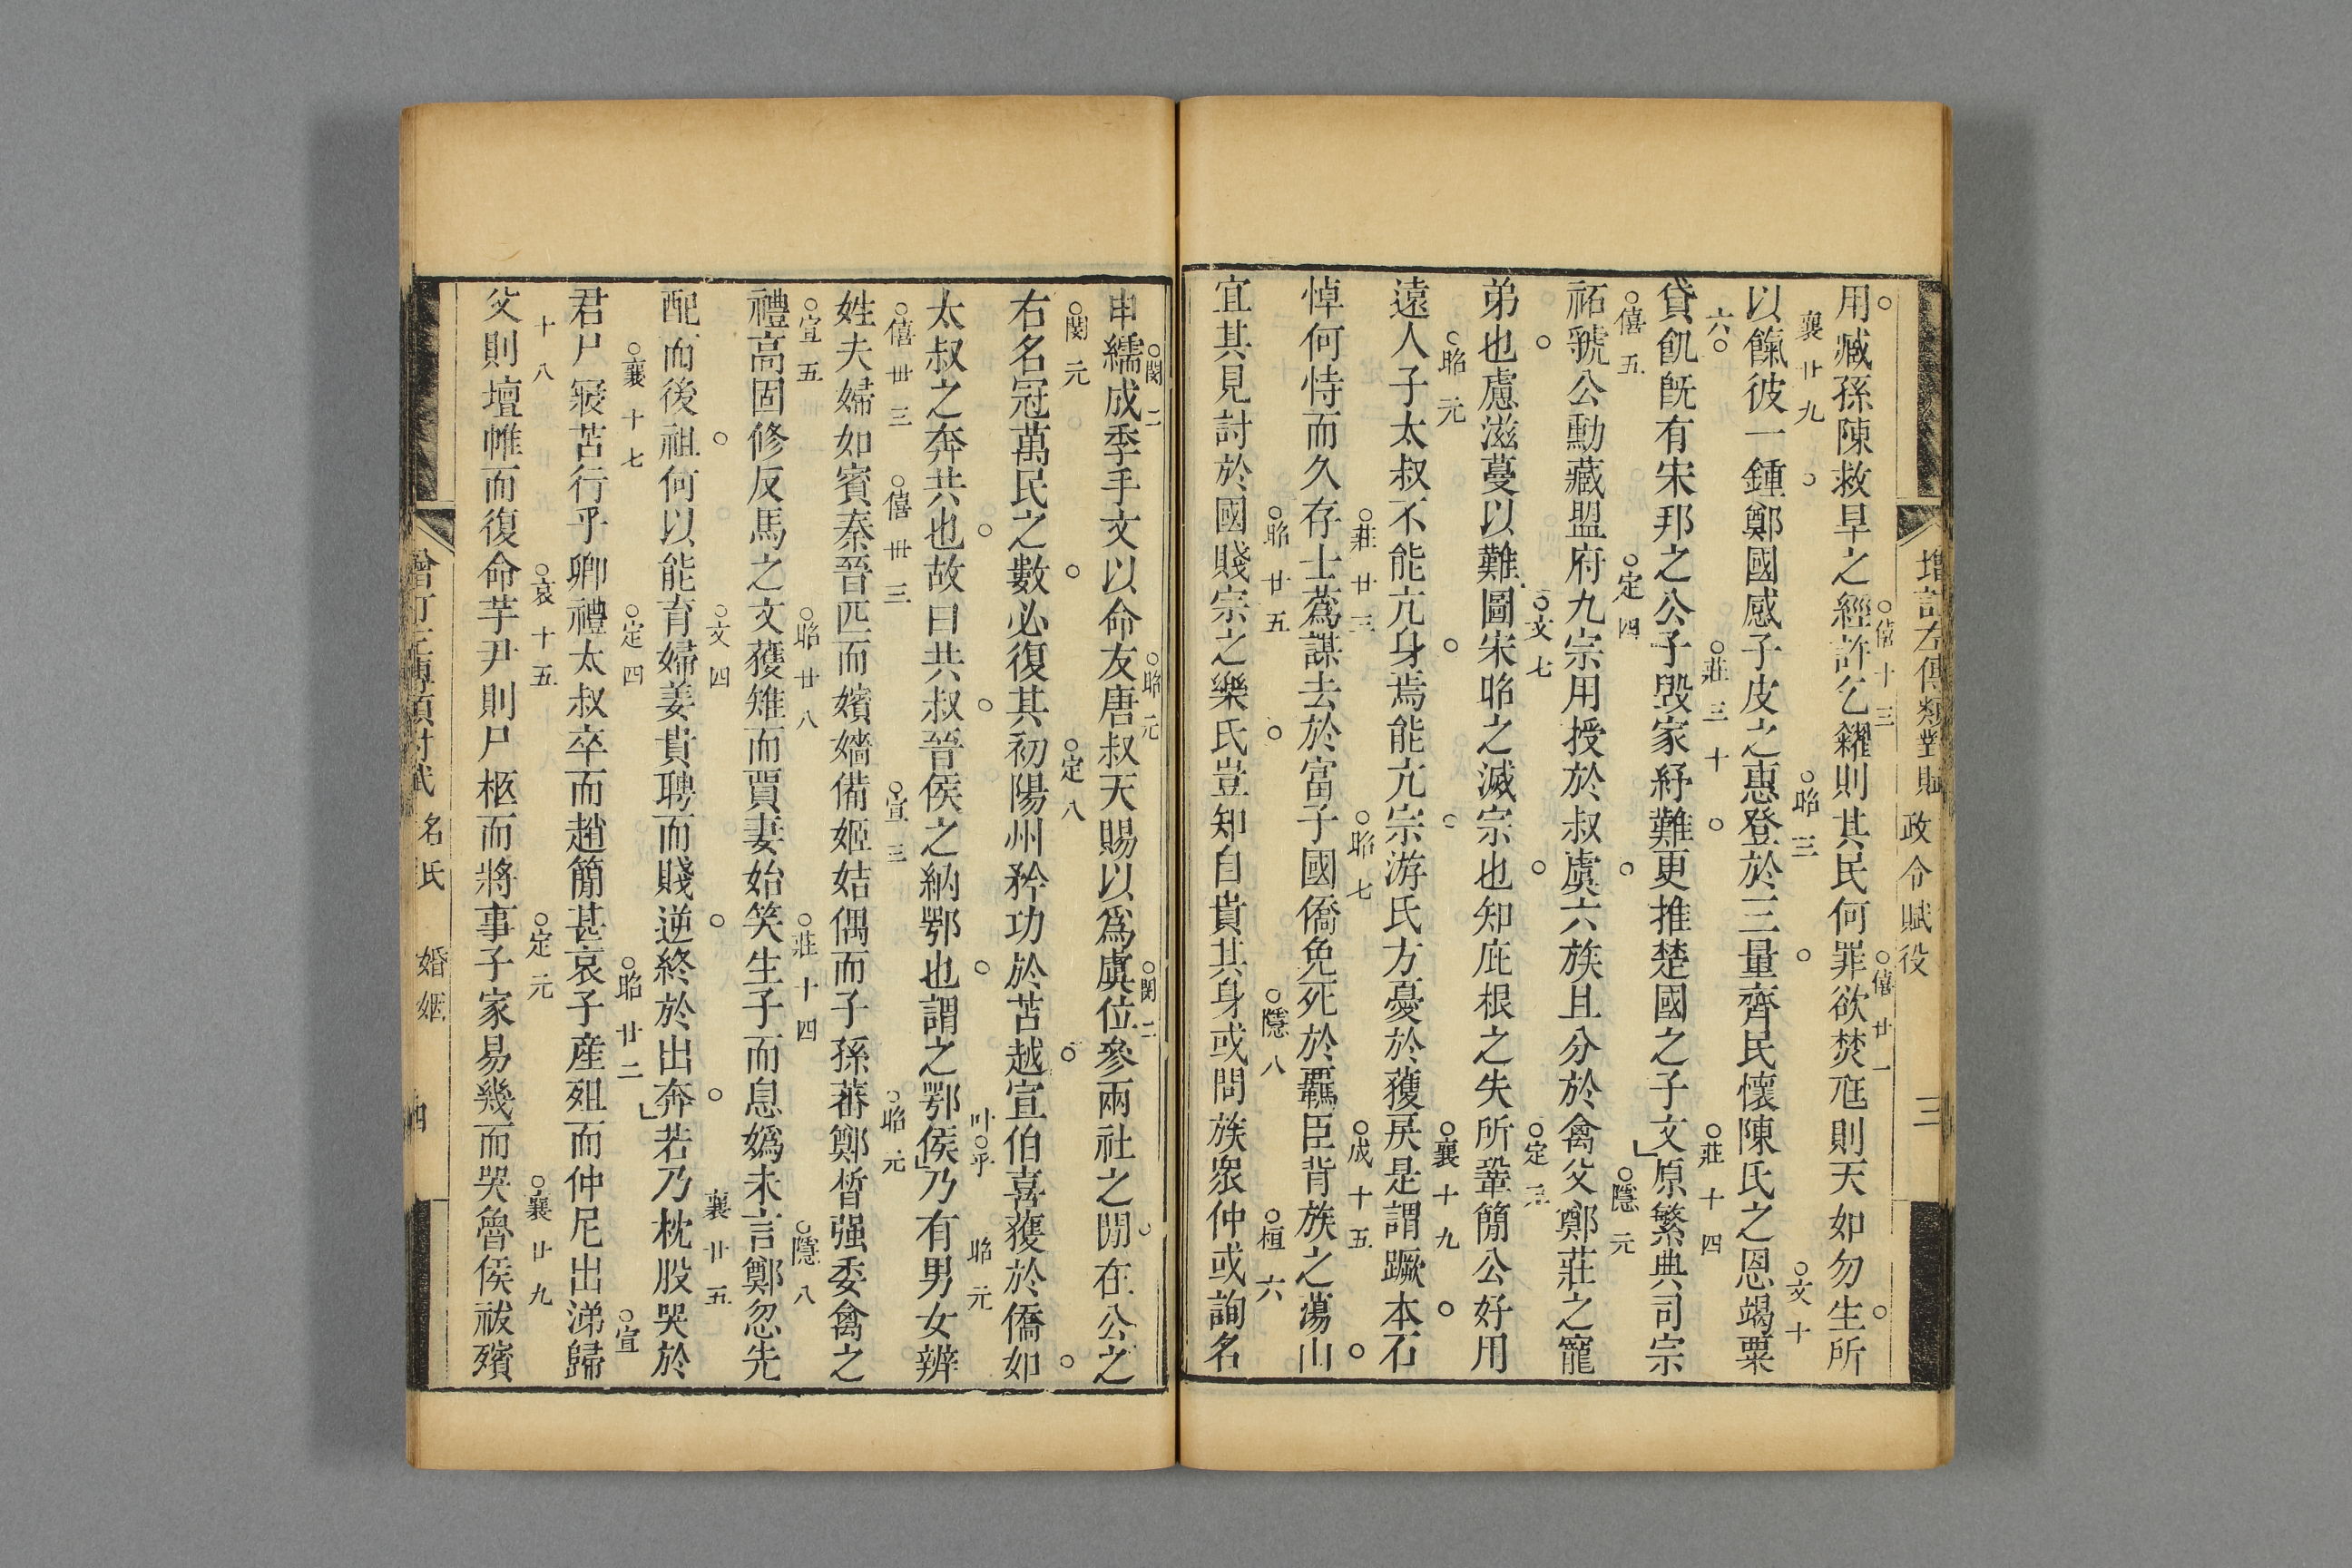 增訂左傳類對賦 政令賦役 三
僖十三 僖廿一
用臧孫陳救旱之經許乞糴則其民何罪欲焚尫則天如勿生所
襄廿九 昭三 文十
以餼彼一鍾鄭國感子皮之惠登於三量齊民懷陳氏之恩竭粟
六 莊三十 莊十四
貸飢旣有宋邦之公子毁家紓難更推楚國之子文原繁典司宗
僖五 定四 隱元
祏虢公勳藏盟府九宗用授於叔虞六族且分於禽父鄭莊之寵
文七 定
弟也慮滋蔓以難圖宋昭之滅宗也知庇根之失所鞏簡公好用
昭元 襄十九
遠人子太叔不能亢身焉能亢宗游氏方憂於獲戾是謂蹶本石
莊廿三 昭七 成十五
悼何恃而久存士蒍謀去於富子國僑免死於羈臣背族之蕩山
昭廿五 隱八 桓六
宜其見討於國賤宗之樂氏豈知自貴其身或問族衆仲或詢名
閔二 昭元 閔二
申繻成季手文以命友唐叔天賜以爲虞位參兩社之閒在公之
閔元 定八
右名冠萬民之數必復其初陽州矜功於苫越宣伯喜獲於僑如
叶平 昭元
太叔之奔共也故曰共叔晉侯之納鄂也謂之鄂侯乃有男女辨
僖卅三 僖卅三 宣三 昭元
姓夫婦如賓秦晉匹而嬪嬙備姬姞偶而子孫蕃鄭皙强委禽之
宣五 昭廿八 莊十四 隱八
禮高固修反馬之文獲雉而賈妻始笑生子而息嬀未言鄭忽先
文四 襄廿五
配而後祖何以能育婦姜貴聘而賤逆終於出奔若乃枕股哭於
襄十七 定四 昭廿二 宣
君尸寢苫行乎卿禮太叔卒而趙簡甚哀子產殂而仲尼出涕歸
十八 哀十五 定元 襄廿九
父則壇帷而復命芋尹則尸柩而將事子家易幾而哭魯侯祓殯
增訂左傳類對賦 名氏 婚姻 四